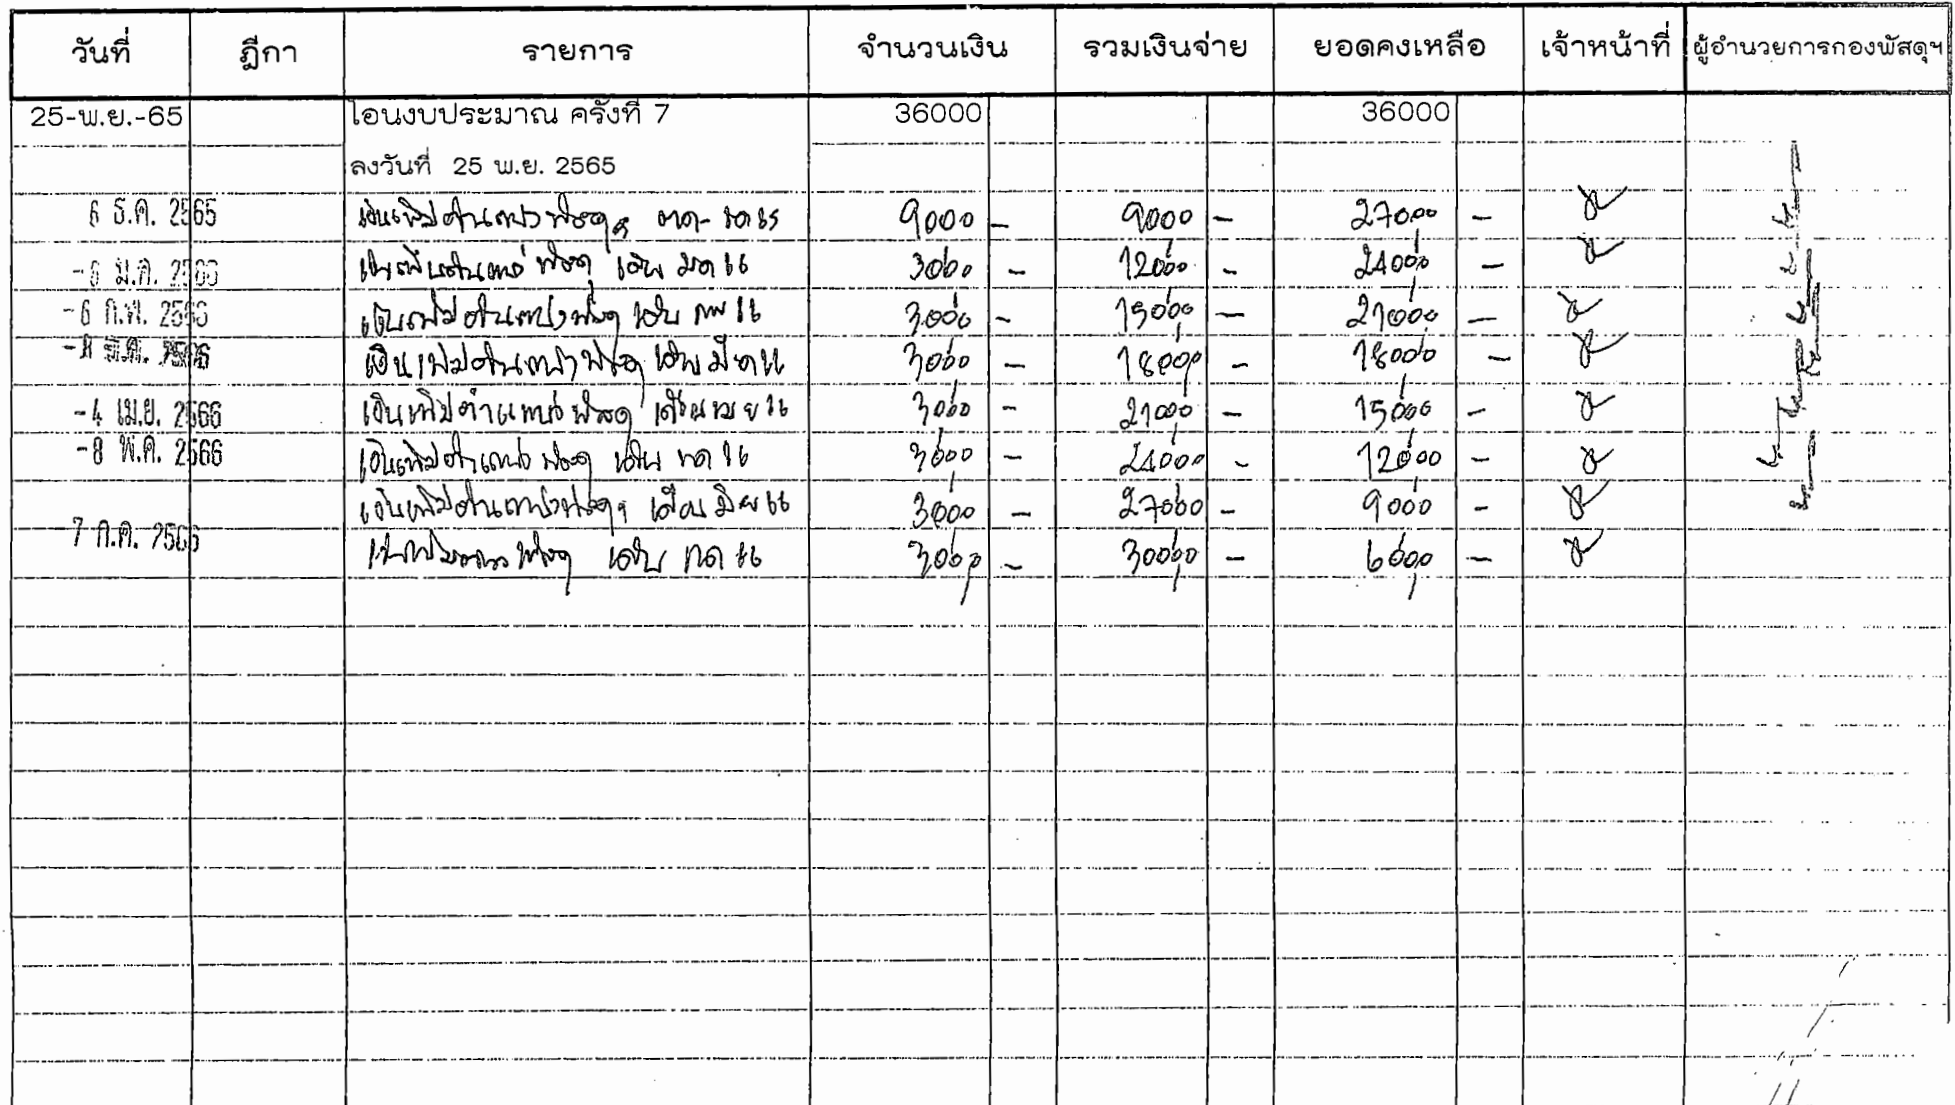 วันที่ ฎีกา รายการ จำนวนเงิน รวมเงินจ่าย ยอดคงเหลือ เจ้าหน้าที่ ผู้อำนวยการกองพัสดุฯ
25-พ.ย.-65 โอนงบประมาณ ครั้งที่ 7 36000 36000
ลงวันที่ 25 พ.ย. 2565
6 ธ.ค. 2565 เงินเพิ่มตำแหน่งพัสดุฯ ตค- ธค 65 9000 - 9000 - 27000 -
-6 ม.ค. 2566 เงินเพิ่มตำแหน่งพัสดุ เดือน มค 66 3000 - 12000 - 24000 -
-6 ก.พ. 2566 เงินเพิ่มตำแหน่งพัสดุ เดือน กพ 66 3000 - 15000 - 21000 -
มี.ค. 2566 เงินเพิ่มตำแหน่งพัสดุ เดือน มีค 66 3000 - 18000 - 18000 -
-4 เม.ย. 2566 เงินเพิ่มตำแหน่งพัสดุ เดือน เมย 66 3000 - 21000 - 15000 -
-8 พ.ค. 2566 เงินเพิ่มตำแหน่งพัสดุ เดือน พค 66 3000 - 24000 - 12000 -
เงินเพิ่มตำแหน่งพัสดุฯ เดือน มิย 66 3000 - 27000 - 9000 -
7 ก.ค. 2566 พัสดุ เดือน กค 66 3000 - 30000 - 6000 -